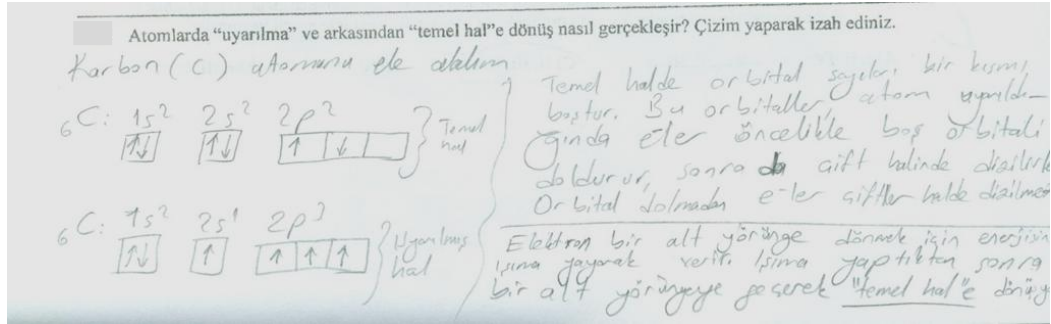 Atomlarda “uyarılma” ve arkasından “temel hal”e dönüş nasıl gerçekleşir? Çizim yaparak izah ediniz.
Karbon (C) atomunu ele alalım
₆C: 1s² 2s² 2p²
↑↓ ↑↓ ↑ ↓
Temel hal
₆C: 1s² 2s¹ 2p³
↑↓ ↑ ↑ ↑ ↑
Uyarılmış hal
Temel halde orbital sayıları, bir kısmı
boştur. Bu orbitaller atom uyarıldı-
ğında e'ler öncelikle boş orbitali
doldurur, sonra da çift halinde
Orbital dolmadan e-ler çiftler halde
Elektron bir alt yörünge dönmek için
Işıma yayarak verir. Işıma yaptıktan sonra
bir alt yörüngeye geçerek "temel hal"e